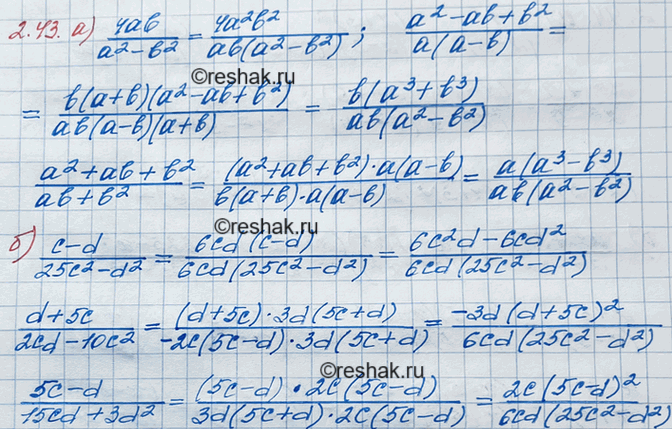 2.43. а) 4ab/(a²-b²) = 4a²b²/(ab(a²-b²)); (a²-ab+b²)/(a(a-b)) =
©reshak.ru
= b(a+b)(a²-ab+b²)/(ab(a-b)(a+b)) = b(a³+b³)/(ab(a²-b²))
(a²+ab+b²)/(ab+b²) = (a²+ab+b²)·a(a-b)/(b(a+b)·a(a-b)) = a(a³-b³)/(ab(a²-b²))
©reshak.ru
б) (c-d)/(25c²-d²) = 6cd(c-d)/(6cd(25c²-d²)) = (6c²d-6cd²)/(6cd(25c²-d²))
(d+5c)/(2cd-10c²) = (d+5c)·3d(5c+d)/(-2c(5c-d)·3d(5c+d)) = -3d(d+5c)²/(6cd(25c²-d²))
(5c-d)/(15cd+3d²) = (5c-d)·2c(5c-d)/(3d(5c+d)·2c(5c-d)) = 2c(5c-d)²/(6cd(25c²-d²))